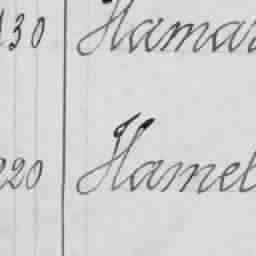 130 Hamar
220 Hamel